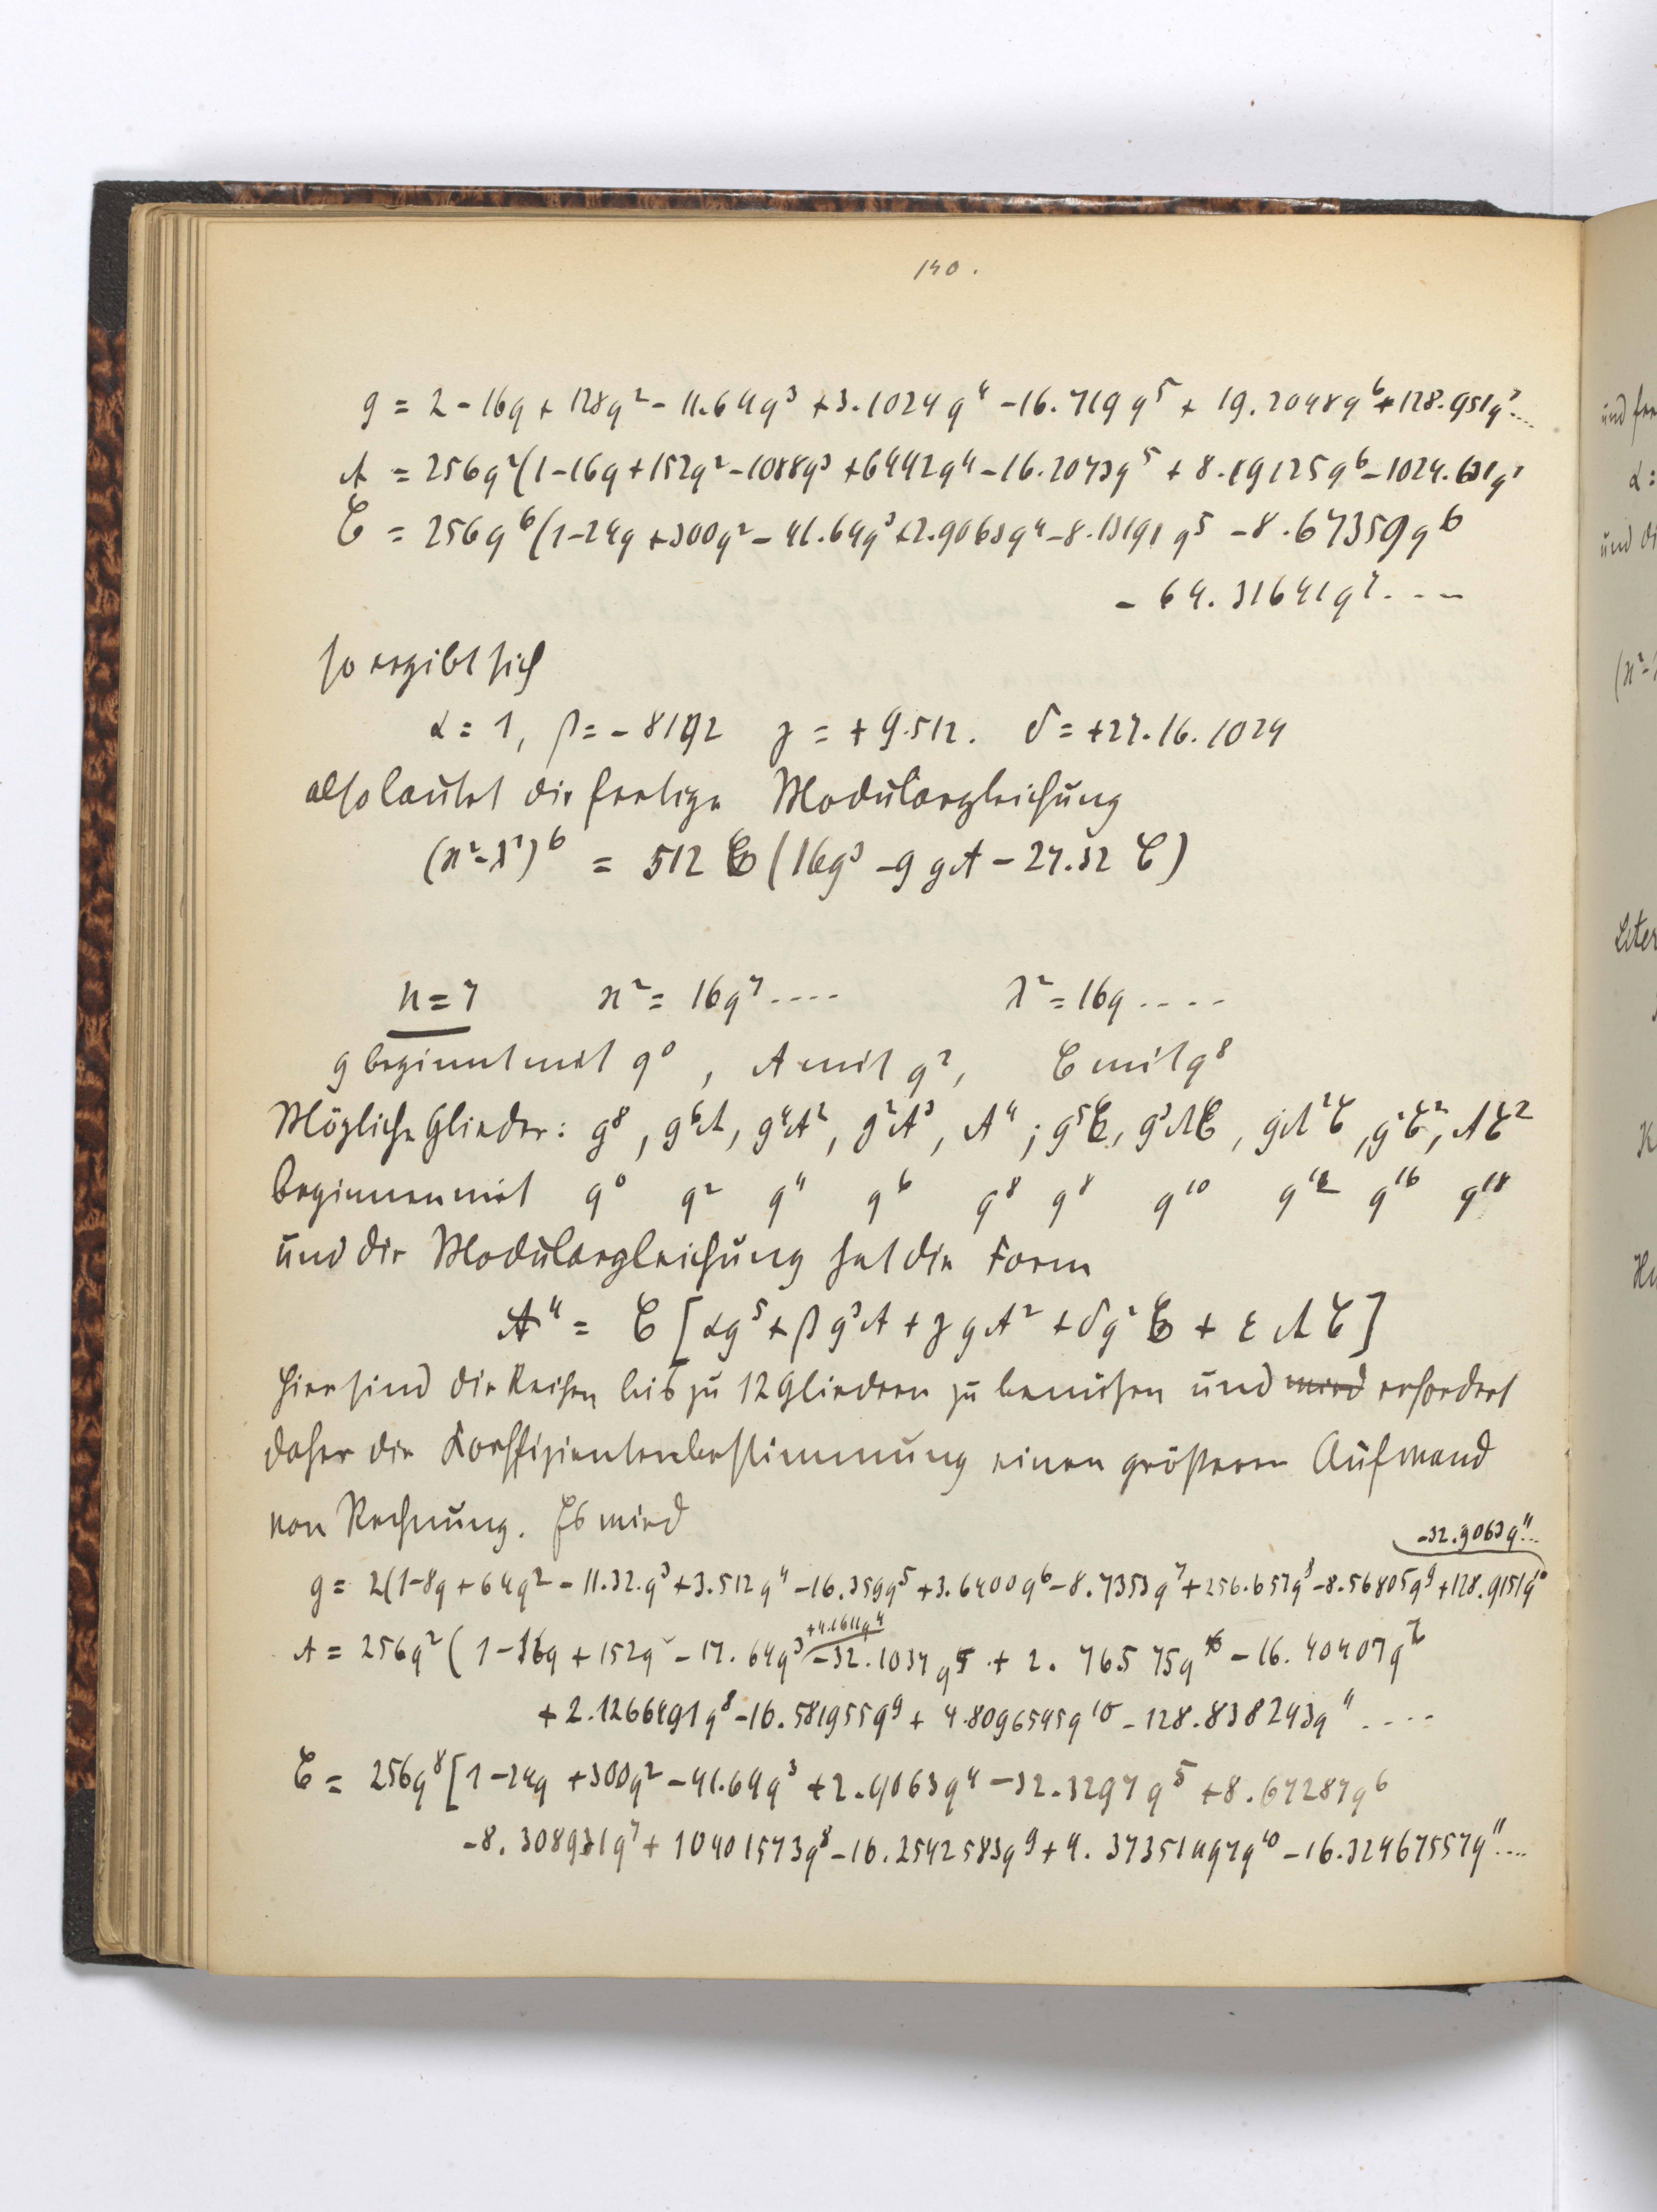 130.
g = 2 - 16q + 128q² - 11.64q³ + 3.1024q⁴ - 16.719q⁵ + 19.2048q⁶ + 128.951q⁷...
A = 256q²(1-16q+152q²-1088q³+6442q⁴-16.2073q⁵ + 8.19125q⁶-1024.631q⁷
C = 256q⁶(1-24q+300q²-41.64q³+2.9063q⁴-8.13191q⁵-8.67359q⁶
- 64.31641q⁷....
so ergibt sich
α = 1, β = -8192 γ = +9.512. δ = +27.16.1024
also lautet die fertige Modulargleichung
(ϰ²-λ²)⁶ = 512 C (16g³ - 9gA - 27.32 C)
n = 7 ϰ² = 16q⁷.... λ² = 16q....
g beginnt mit q⁰, A mit q², C mit q⁸
Mögliche Glieder: g⁸, g⁶A, g⁴A², g²A³, A⁴; g⁵C, g³AC, gA²C, g²C², AC²
beginnen mit q⁰ q² q⁴ q⁶ q⁸ q⁸ q¹⁰ q¹² q¹⁶ q¹⁸
und die Modulargleichung hat die Form
A⁴ = C [αg⁵ + βg³A + γgA² + δg²C + εAC]
Hier sind die Reihen bis zu 12 Gliedern zu benützen und wird erfordert
daher die Koeffizientenbestimmung einen größeren Aufwand
von Rechnung. Es wird
-32.9063q¹¹...
g = 2(1-8q+64q²-11.32.q³+3.512q⁴-16.359q⁵+3.6400q⁶-8.7353q⁷+256.657q⁸-8.56805q⁹+128.9151q¹⁰
+4.1611q⁴
A = 256q²(1-16q+152q²-17.64q³-32.1037q⁵+2.76575q⁶-16.40407q⁷
+2.1266491q⁸-16.581955q⁹+4.8096545q¹⁰-128.838243q¹¹....
C = 256q⁸[1-24q+300q²-41.64q³+2.9063q⁴-32.3297q⁵+8.67287q⁶
-8.308931q⁷+10401573q⁸-16.2542583q⁹+4.373511497q¹⁰-16.324675557q¹¹....
und
α =
und di
(ϰ²-